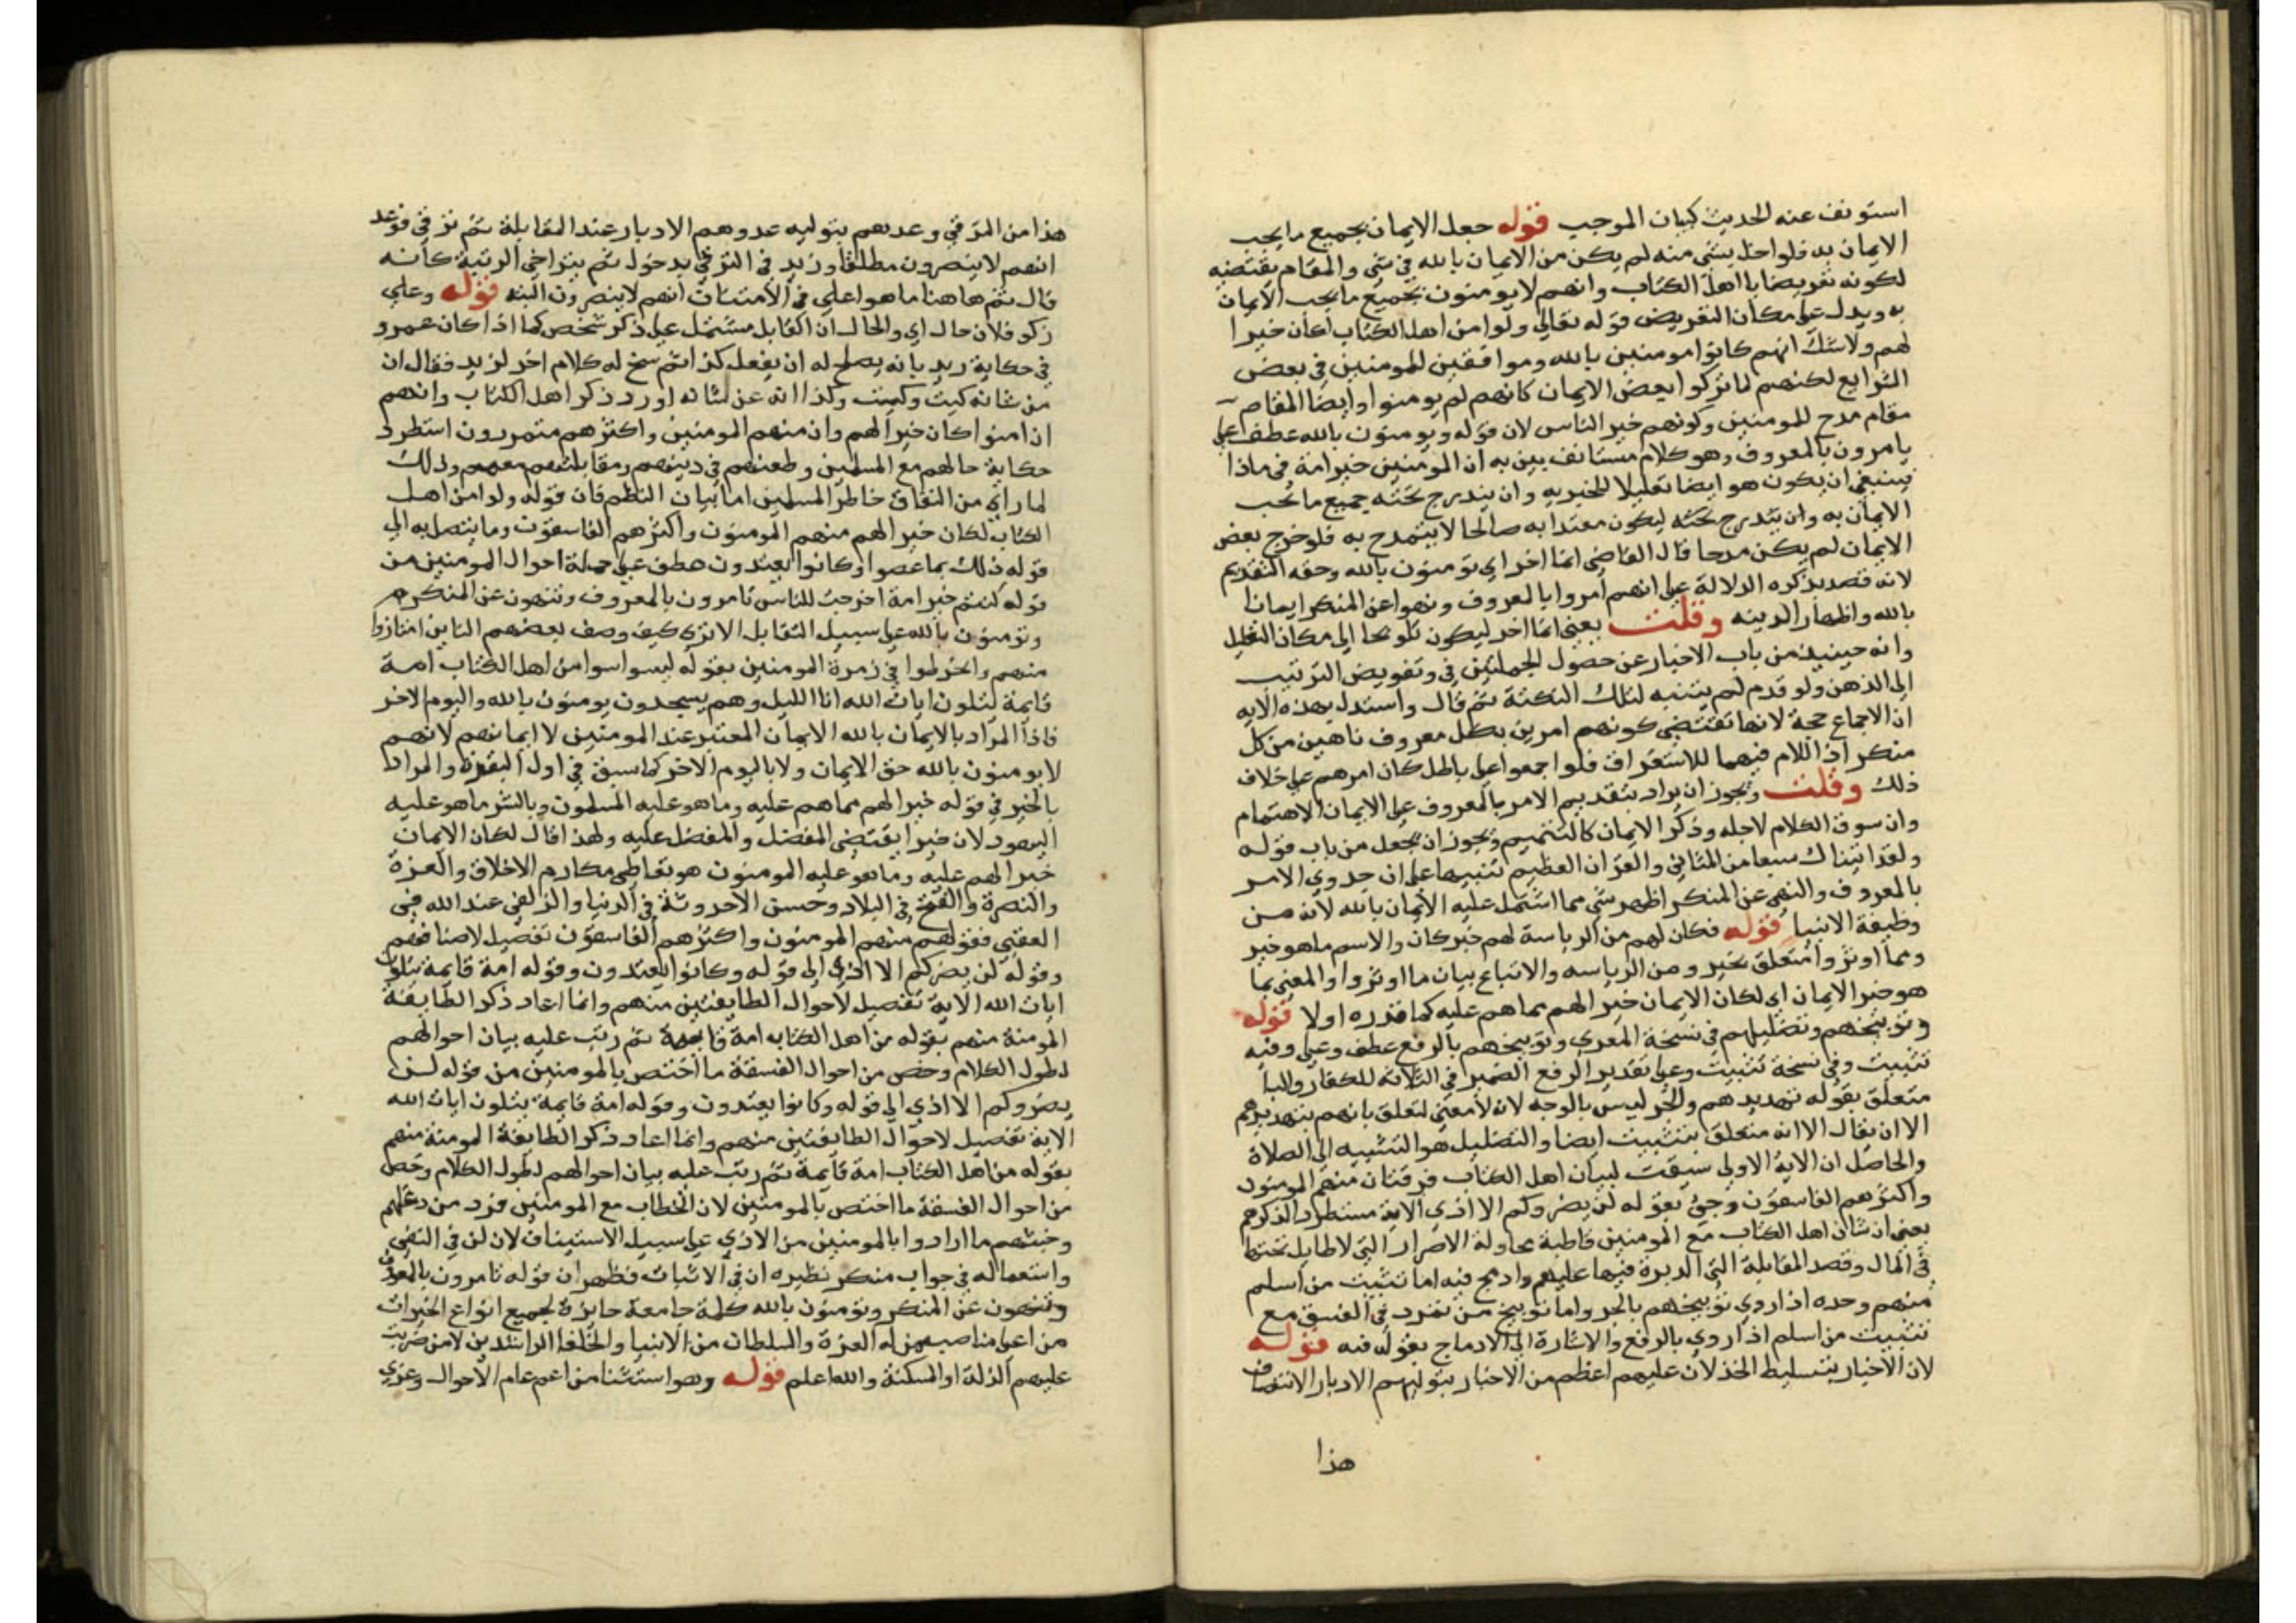 استونف عنه الحديث كبيان الموجب قوله جعل الايمان بجميع ما يجب
الايمان به فلو اخل بشي منه لم يكن من الايمان بالله في شي والمقام يقتضيه
لكونه تعريضا با اهل الكتاب وانهم لا يومنون بجميع ما يجب الايمان
به ويدل على مكان التعريض قوله تعالي ولو امن اهل الكتاب لكان خيرا
لهم ولا شك انهم كانوا مومنين بالله وموافقين للمومنين في بعض
الشرايع لكنهم لما تركوا بعض الايمان كانهم لم يومنوا وايضا المقام
مقام مدح للمومنين وكونهم خير الناس لان قوله ويومنون بالله عطف علي
يامرون بالمعروف وهو كلام مستانف بين به ان المومنين خير امة في ماذا
فينبغي ان يكون هو ايضا تعليلا للخيريه وان يندرج تحته جميع ما يجب
الايمان به وان يندرج تحته ليكون معتدا به صالحا لا يتمدح به فلو خرج بعض
الايمان لم يكن مدحا قال القاضي انما اخر اي تومنون بالله وحقه التقديم
لانه قصد بذكره الدلالة على انهم امروا بالمعروف ونهوا عن المنكر ايمانا
بالله واظهار الدينه وقلت يعني انما اخر ليكون تلويحا الي مكان التعليل
وانه حينيذ من باب الاخبار عن حصول الجملتين في وتفويض الترتيب
الي الذهن ولو قدم لم يتنبه لتلك النكتة ثم قال واستدل بهذه الايه
ان الاجماع حجة لانها تقتضي كونهم امرين بكل معروف ناهين من كل
منكر اذ اللام فيهما للاستغراق فلو اجمعوا علي باطل كان امرهم علي خلاف
ذلك وقلت ويجوز ان يراد بتقديم الامر بالمعروف على الايمان الاهتمام
وان سوق الكلام لاجله وذكر الايمان كالتتميم ويجوز ان يجعل من باب قوله
ولقد اتيناك سبعا من المثاني والقران العظيم تنبيها على ان جدوي الامر
بالمعروف والنهي عن المنكر اظهر شي مما اشتمل عليه الايمان بالله لانه من
وظيفة الانبيا قوله فكان لهم من الرياسة لهم خبر كان والاسم ما هو خير
ومما اوثروا متعلق بخير ومن الرياسه والاتباع بيان ما اوثروا والمعني بما
هو خير الايمان اي لكان الايمان خيرا لهم مما هم عليه كما قدره اولا قوله
وتوبيخهم وتضليلهم في نسخة المعري وتوبيخهم بالرفع عطف وعلي وفيه
تثبيت وفي نسخة تثبيت وعلي تقدير الرفع الضمير في الثلاثة للكفار والبا
متعلق بقوله تهديدهم والجر ليس بالوجه لانه لا معني لتعلق بانهم بتهديدهم
الا ان يقال الا انه متعلق بتثبيت ايضا والتضليل هو التثبيه الى الصلاة
والحاصل ان الاية الاولي سيقت لبيان اهل الكتاب فرقتان منهم المومنون
واكثرهم الفاسقون وجي بقوله لن يضروكم الا اذي الاية مستطرد الذكرهم
يعني ان شان اهل الكتاب مع المومنين قاطبة محاولة الاضرار التي لا طايل تحتها
في المال وقصد المقابلة التي الدبرة فيها عليهم وادمج فيه اما تثبيت من اسلم
منهم وحده اذا روي توبيخهم بالجر واما توبيخ من تفرد في الفسق مع
تثبيت من اسلم اذا روي بالرفع والاشارة الي الادماج بقوله فيه قوله
لان الاخبار بتسليط الخذلان عليهم اعظم من الاخبار بتوليهم الادبار الانتصاف
هذا
هذا من الترقي وعدهم بتوليه عدوهم الادبار عند المقابلة ثم ترقي فوعد
انهم لا ينصرون مطلقا وزيد في الترقي بدخول ثم بتراخي الرتبة كانه
قال ثم هاهنا ما هو اعلي في الامتنان انهم لا ينصرون البته قوله وعلي
ذكر فلان حال اي والحال ان القابل مشتمل علي ذكر شخص كما اذا كان عمرو
في حكاية زيد بانه يصلح له ان يفعل كذا ثم سنح له كلام اخر لزيد فقال ان
من شانه كيت وكيت وكذا انه عن شانه اورد ذكر اهل الكتاب وانهم
ان امنوا كان خيرا لهم وان منهم المومنين واكثرهم متمردون استطرد
حكاية حالهم مع المسلمين وطعنهم في دينهم ومقابلتهم معهم وذلك
لما راي من النفاق خاطر المسلمين اما بيان النظم فان قوله ولو امن اهل
الكتاب لكان خيرا لهم منهم المومنون واكثرهم الفاسقون وما يتصل به الي
قوله ذلك بما عصوا وكانوا يعتدون عطف علي جملة احوال المومنين من
قوله كنتم خير امة اخرجت للناس تامرون بالمعروف وتنهون عن المنكر
وتومنون بالله علي سبيل التقابل الا تري كيف وصف بعضهم الذين امتازوا
منهم وانخرطوا في زمرة المومنين بقوله ليسوا سوا من اهل الكتاب امة
قايمة يتلون ايات الله انا الليل وهم يسجدون يومنون بالله واليوم الاخر
فاذا المراد بالايمان بالله الايمان المعتبر عند المومنين لا ايمانهم لانهم
لا يومنون بالله حق الايمان ولا باليوم الاخر كما سبق في اول البقرة والمراد
بالخير في قوله خيرا لهم مما هم عليه وما هو عليه المسلمون وبالشر ما هو عليه
اليهود لان خيرا يقتضي المفضل والمفضل عليه ولهذا قال لكان الايمان
خيرا لهم عليه وما هو عليه المومنون هو تعاطي مكارم الاخلاق والعزة
والنصرة والفتح في البلاد وحسن الاحدوثة في الدنيا والزلفي عند الله في
العقبي فقولهم منهم المومنون واكثرهم الفاسقون تفصيل لاصنافهم
وقوله لن يضركم الا اذي الي قوله وكانوا يعتدون وقوله امة قايمة يتلون
ايات الله الاية تفصيل لاحوال الطايفتين منهم وانما اعاد ذكر الطايفة
المومنة منهم بقوله من اهل الكتابه امة قايمة ثم رتب عليه بيان احوالهم
لطول الكلام وخص من احوال الفسقة ما اختص بالمومنين من قوله لن
يضروكم الا اذي الي قوله وكانوا يعتدون وقوله امة قايمة يتلون ايات الله
الاية تفصيل لاحوال الطايفتين منهم وانما اعاد ذكر الطايفة المومنة منهم
بقوله من اهل الكتاب امة قايمة ثم رتب عليه بيان احوالهم لطول الكلام وخص
من احوال الفسقة ما اختص بالمومنين لان الخطاب مع المومنين فرد من دغلهم
وخبثهم ما ارادوا بالمومنين من الاذي علي سبيل الاستيناف لان لن في النفي
واستعماله في جواب منكر نظيره ان في الاثبات فظهر ان قوله تامرون بالمعروف
وتنهون عن المنكر وتومنون بالله كلمة جامعة حايزة لجميع انواع الخيرات
من اعلي مناصبهم من له العزة والسلطان من الانبيا والخلفا الراشدين لا من ضربت
عليهم الذلة او المسكنة والله اعلم قوله وهو استثنا من اعم عام الاحوال وعزي